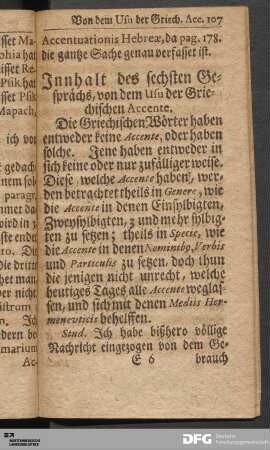 Von dem Usu der Griech. Acc. 107
Accentuationis Hebreæ, da pag. 178.
die gantze Sache genau verfasset ist.
Innhalt des sechsten Ge-
sprächs, von dem Usu der Grie-
chischen Accente.
Die Griechischen Wörter haben
entweder keine Accente, oder haben
solche. Jene haben entweder in
sich keine oder nur zufälliger weise.
Diese, welche Accente haben, wer-
den betrachtet theils in Genere, wie
die Accente in denen Einsylbigten,
Zweysylbigten, 3 und mehr sylbig-
ten zu setzen; theils in Specie, wie
die Accente in denen Nominibꝰ, Verbis
und Particulis zu setzen, doch thun
die jenigen nicht unrecht, welche
heutiges Tages alle Accente weglas-
sen, und sich mit denen Mediis Her-
menevticis behelffen.
Stud. Ich habe bißhero völlige
Nachricht eingezogen von dem Ge-
E 6 brauch
DFG Deutsche
Forschungsgemeinschaft